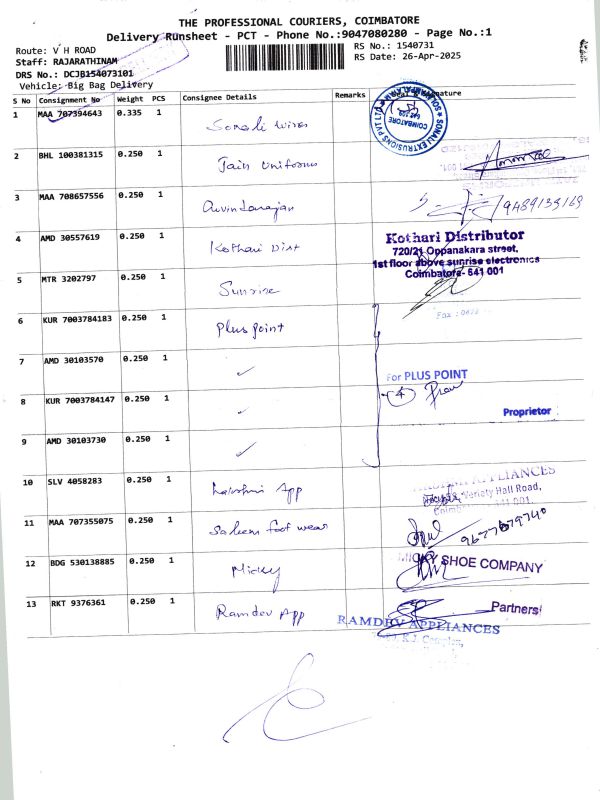 THE PROFESSIONAL COURIERS, COIMBATORE
Delivery Runsheet - PCT - Phone No.:9047080280 - Page No.:1
Route: V H ROAD
RS No.: 1540731
Staff: RAJARATHINAM
RS Date: 26-Apr-2025
DRS No.: DCJB154073101
Vehicle: Big Bag Delivery
S No Consignment No Weight PCS Consignee Details Remarks Signature
1 MAA 707394643 0.335 1 Sonali Wires
SONAL EXTRUSIONS PVT LTD
COIMBATORE
2 BHL 100381315 0.250 1 Jain Uniforms
3 MAA 708657556 0.250 1 Arvindarajan 9489135169
4 AMD 30557619 0.250 1 Kothari Dist
Kothari Distributor
720/21 Oppanakara street,
1st floor above sunrise electronics
Coimbatore- 641 001
5 MTR 3202797 0.250 1 Sunrise
Fax : 0422
6 KUR 7003784183 0.250 1 Plus point
7 AMD 30103570 0.250 1 ✓
For PLUS POINT
8 KUR 7003784147 0.250 1 ✓
4
Proprietor
9 AMD 30103730 0.250 1 ✓
10 SLV 4058283 0.250 1 Lakshmi App
APPLIANCES
Variety Hall Road,
11 MAA 707355075 0.250 1 Saleem foot wear 9677679740
12 BDG 530138885 0.250 1 Micky
MICKY SHOE COMPANY
13 RKT 9376361 0.250 1 Ramdev App
Partners
RAMDEV APPLIANCES